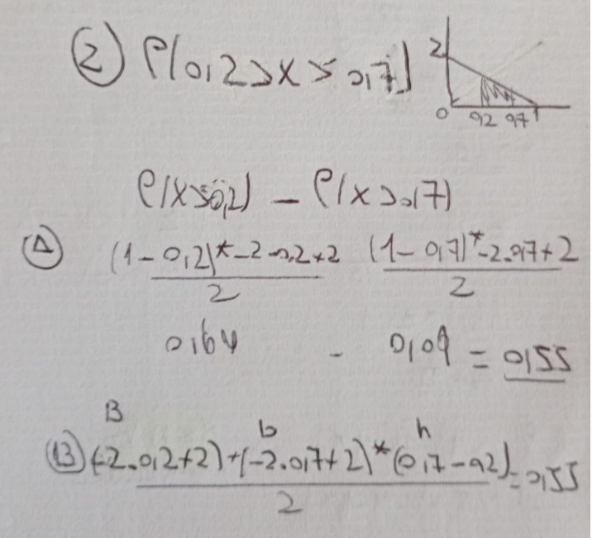 ② P(0,2>x>0,7)
2
0 0,2 0,7 1
P(x>0,2) - P(x>0,7)
Ⓐ (1-0,2)*-2·0,2+2 (1-0,7)*-2·0,7+2
2 2
0,64 - 0,09 = 0,55
B b h
Ⓑ (-2·0,2+2)+(-2·0,7+2)*(0,7-0,2) = 0,55
2